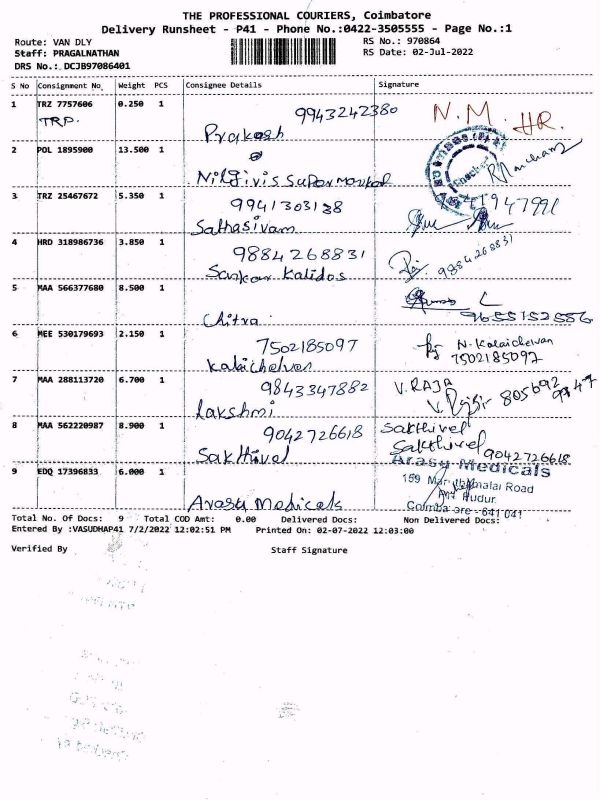 THE PROFESSIONAL COURIERS, Coimbatore
Delivery Runsheet - P41 - Phone No.:0422-3505555 - Page No.:1
Route: VAN DLY RS No.: 970864
Staff: PRAGALNATHAN RS Date: 02-Jul-2022
DRS No.: DCJB97086401
S No Consignment No Weight PCS Consignee Details Signature
1 TRZ 7757606 0.250 1 9943242380 N.M. HR.
TRP. Prakash
2 POL 1895900 13.500 1
Nilgiris Supermarket
3 TRZ 25467672 5.350 1 9941303138
Sathasivam
4 HRD 318986736 3.850 1 9884268831 9884268831
Sankar Kalidos
5 MAA 566377680 8.500 1
Chitra 9655152556
6 MEE 530179693 2.150 1 7502185097 N. Kalaichelvan
Kalaichelvan 7502185097
7 MAA 288113720 6.700 1 9843347882 V. RAJA
Lakshmi
8 MAA 562220987 8.900 1 9042726618 Sakthivel
Sakthivel Sakthivel 9042726618
9 EDQ 17396833 6.000 1 Arasu Medicals
Arasu Medicals
Total No. Of Docs: 9 Total COD Amt: 0.00 Delivered Docs: Non Delivered Docs:
Entered By :VASUDHAP41 7/2/2022 12:02:51 PM Printed On: 02-07-2022 12:03:00
Verified By Staff Signature